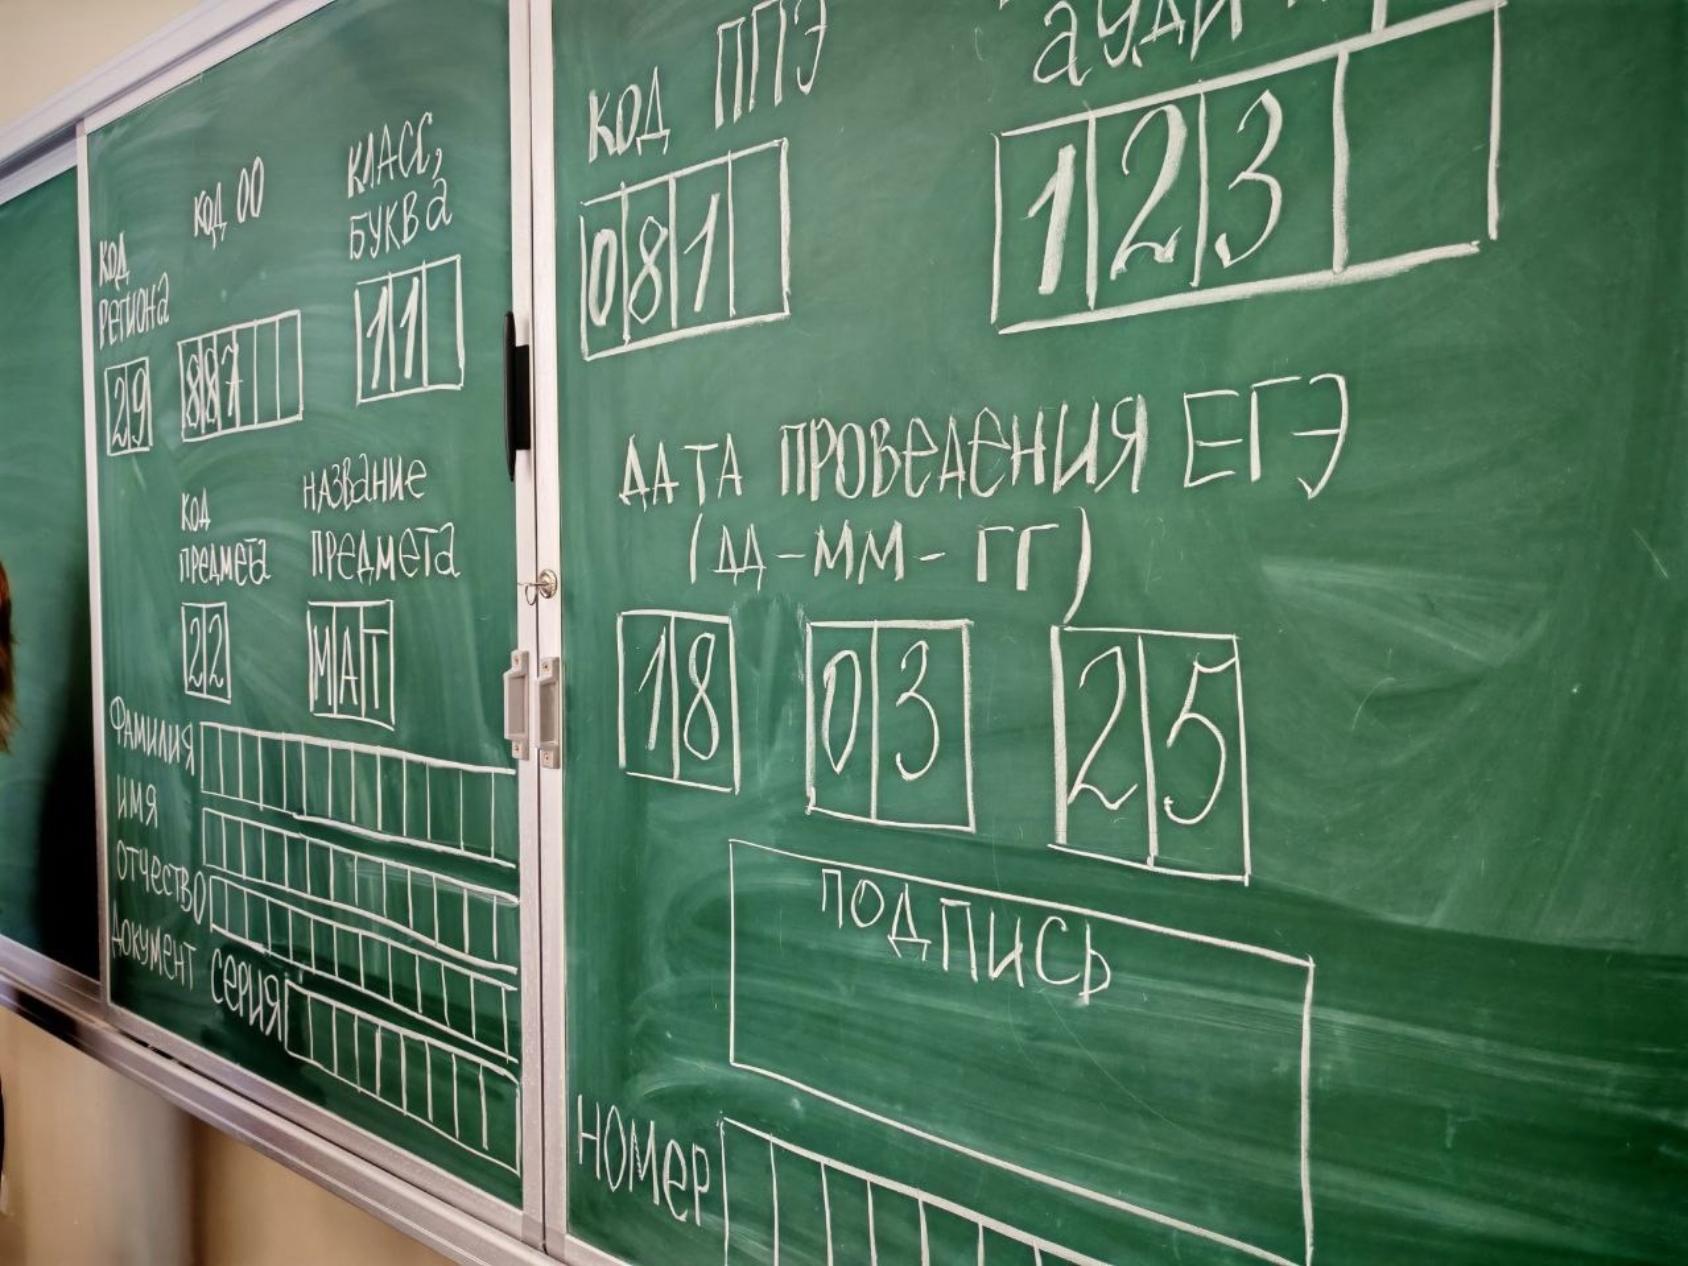 КОД РЕГИОНА
29
КОД ОО
887
КЛАСС,
БУКВА
11
КОД
ПРЕДМЕТА
22
НАЗВАНИЕ
ПРЕДМЕТА
МАТ
ФАМИЛИЯ
ИМЯ
ОТЧЕСТВО
ДОКУМЕНТ СЕРИЯ
КОД ППЭ
081
123
ДАТА ПРОВЕДЕНИЯ ЕГЭ
(ДД-ММ-ГГ)
18 03 25
ПОДПИСЬ
НОМЕР